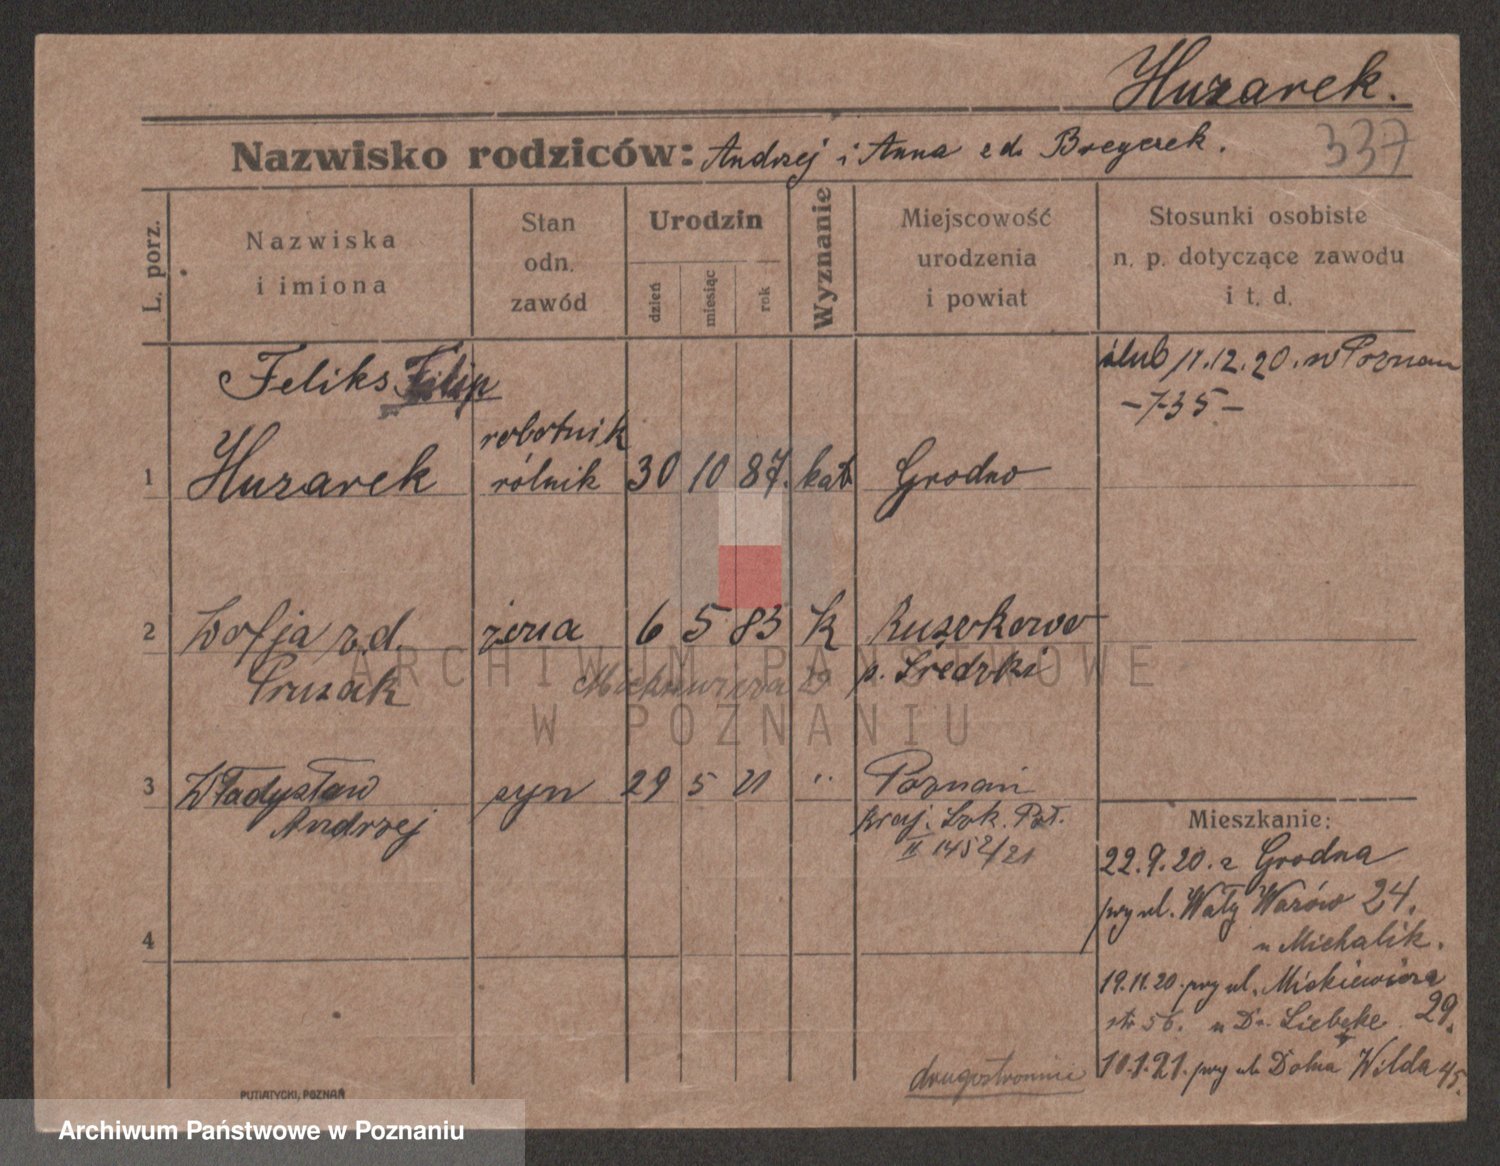 Huzarek.
Nazwisko rodziców: Andrzej i Anna z d. Bregerek.
337
L. porz.
Nazwiska
i imiona
Stan
odn.
zawód
Urodzin
dzień
miesiąc
rok
Wyznanie
Miejscowość
urodzenia
i powiat
Stosunki osobiste
n. p. dotyczące zawodu
i t. d.
Feliks Filip
ślub 11.12.20. w Poznan
-735-
robotnik
1 Huzarek rólnik 30 10 87. kat Grodno
2 Zofja z.d. żona 6 5 83 k Ruszkowo
Pruzak Mickiewicza 29 p. Średzki
3 Władysław syn 29 5 21 " Poznań
Andrzej
II 1452/21
4
Mieszkanie:
22.9.20. z Grodna
przy ul. Wały Wazów 24.
u Michalik.
19.11.20. przy ul. Mickiewicza
29.
str 56. u Dr. Liebeke
10.1.21. przy ul. Dolna Wilda 45.
drugostronnie
PUTIATYCKI, POZNAŃ
ARCHIWUM PAŃSTWOWE
W POZNANIU
Archiwum Państwowe w Poznaniu